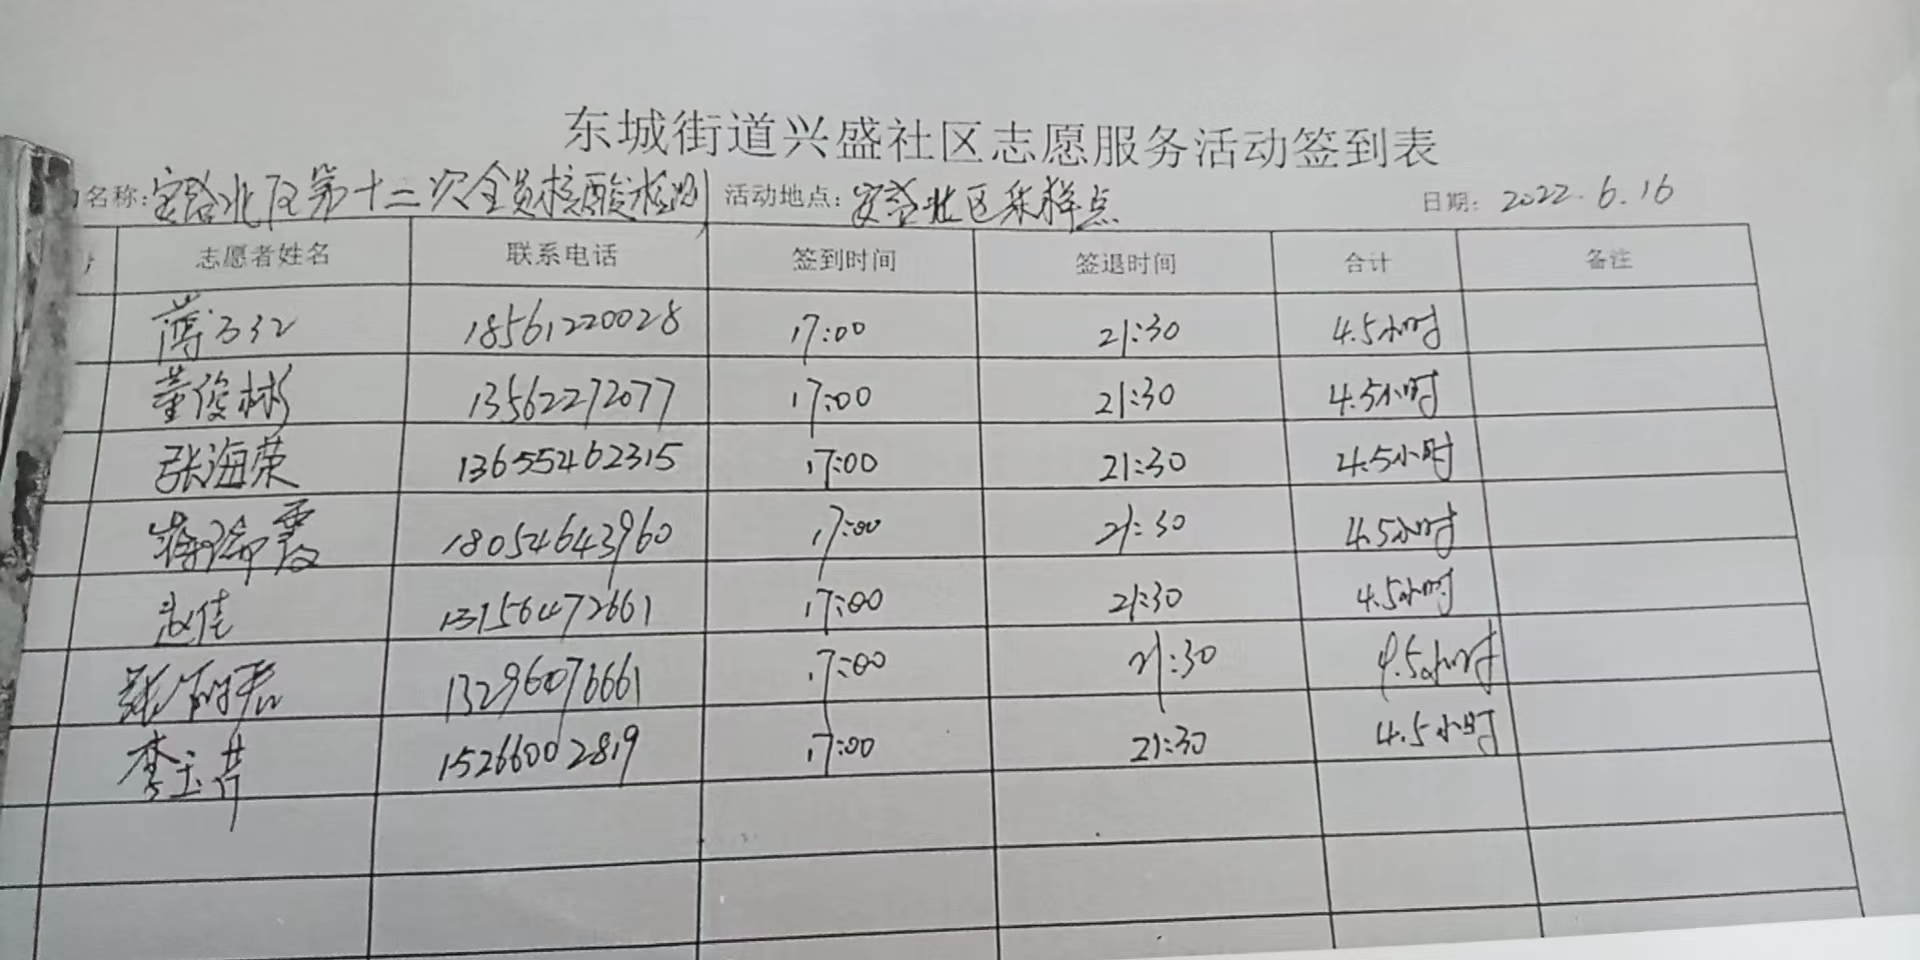 东城街道兴盛社区志愿服务活动签到表
名称: 北区第十二次全员核酸检测 活动地点: 安盛北区采样点 日期: 2022.6.16
志愿者姓名 联系电话 签到时间 签退时间 合计 备注
18561220028 17:00 21:30 4.5小时
董俊彬 13562272077 17:00 21:30 4.5小时
张海荣 13655462315 17:00 21:30 4.5小时
蒋瑞霞 18054643960 17:00 21:30 4.5小时
佳 13156472661 17:00 21:30 4.5小时
张 13296076661 17:00 21:30 4.5小时
李玉 15266002819 17:00 21:30 4.5小时